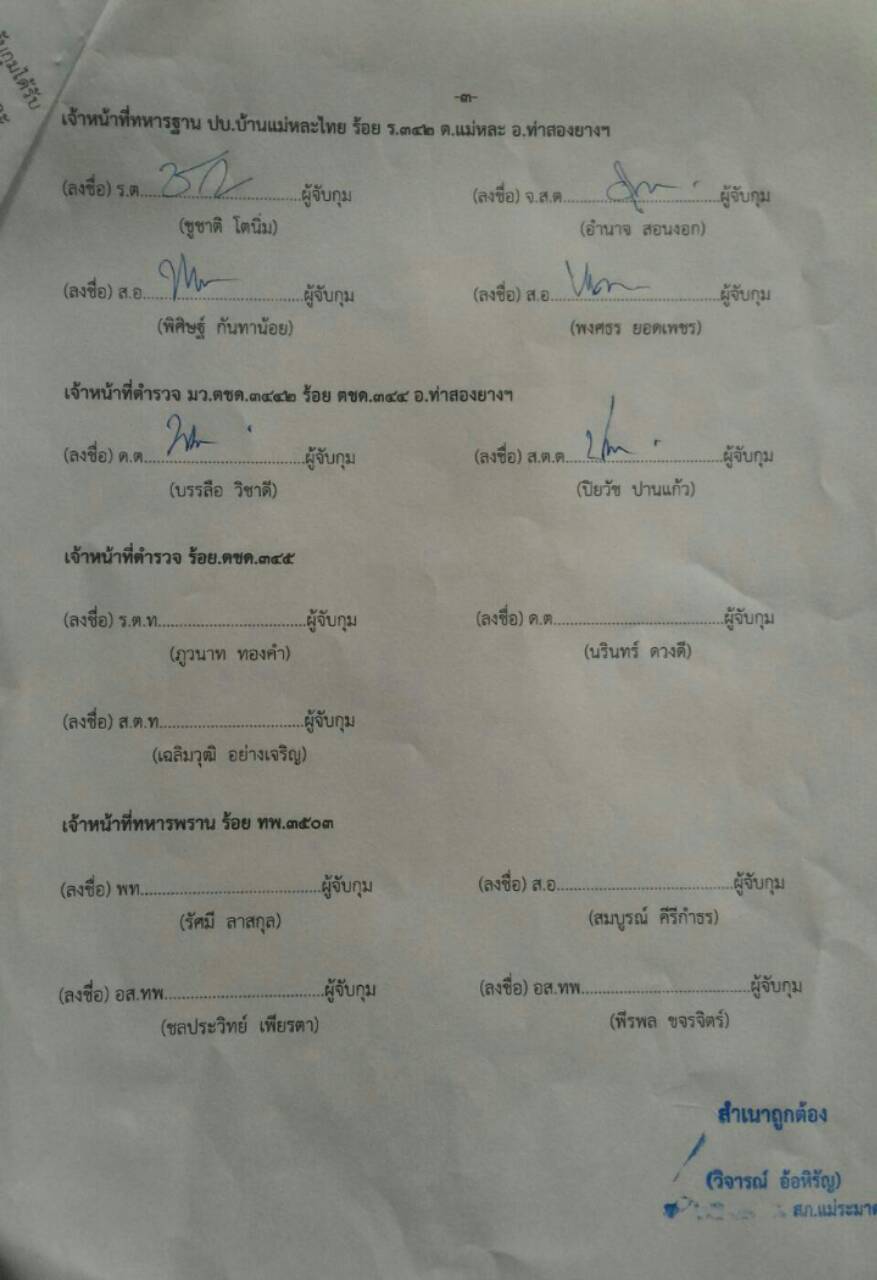 บกุมได้รับ
-๓-
เจ้าหน้าที่ทหารฐาน ปบ.บ้านแม่หละไทย ร้อย ร.๓๔๒ ต.แม่หละ อ.ท่าสองยางฯ
(ลงชื่อ) ร.ต.......................................ผู้จับกุม (ลงชื่อ) จ.ส.ต.......................................ผู้จับกุม
(ชูชาติ โตนิ่ม) (อำนาจ สอนงอก)
(ลงชื่อ) ส.อ.......................................ผู้จับกุม (ลงชื่อ) ส.อ.......................................ผู้จับกุม
(พิศิษฐ์ กันทาน้อย) (พงศธร ยอดเพชร)
เจ้าหน้าที่ตำรวจ มว.ตชด.๓๔๔๒ ร้อย ตชด.๓๔๔ อ.ท่าสองยางฯ
(ลงชื่อ) ด.ต.......................................ผู้จับกุม (ลงชื่อ) ส.ต.ต.......................................ผู้จับกุม
(บรรลือ วิชาดี) (ปิยวัช ปานแก้ว)
เจ้าหน้าที่ตำรวจ ร้อย.ตชด.๓๔๕
(ลงชื่อ) ร.ต.ท.......................................ผู้จับกุม (ลงชื่อ) ด.ต.......................................ผู้จับกุม
(ภูวนาท ทองคำ) (นรินทร์ ดวงดี)
(ลงชื่อ) ส.ต.ท.......................................ผู้จับกุม
(เฉลิมวุฒิ อย่างเจริญ)
เจ้าหน้าที่ทหารพราน ร้อย ทพ.๓๕๐๓
(ลงชื่อ) พท.......................................ผู้จับกุม (ลงชื่อ) ส.อ.......................................ผู้จับกุม
(รัศมี ลาสกุล) (สมบูรณ์ คีรีกำธร)
(ลงชื่อ) อส.ทพ.......................................ผู้จับกุม (ลงชื่อ) อส.ทพ.......................................ผู้จับกุม
(ชลประวิทย์ เพียรตา) (พีรพล ขจรจิตร์)
สำเนาถูกต้อง
(วิจารณ์ อ้อหิรัญ)
สภ.แม่ระมาด